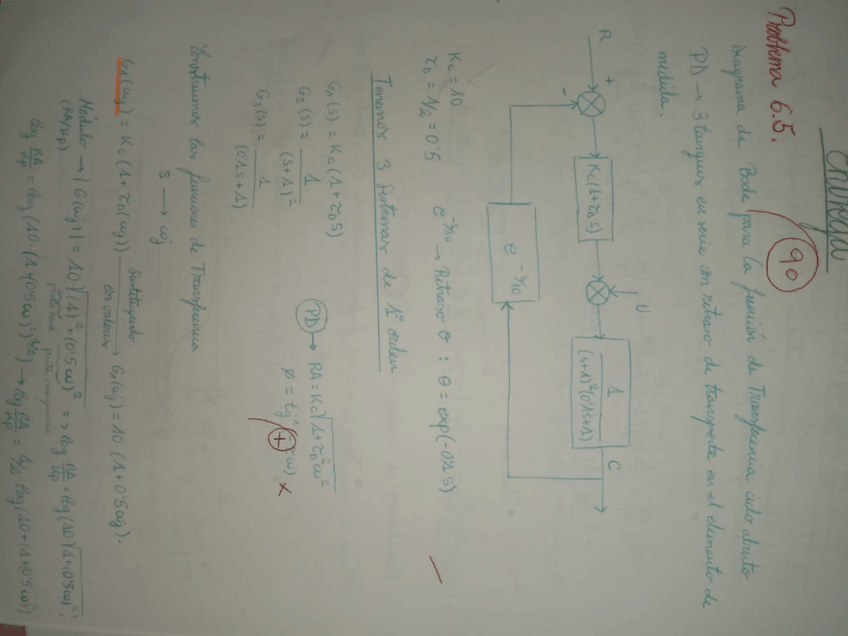 Entrega
Problema 6.5.
90
Diagrama de Bode para la función de Transferencia ciclo abierto.
PD → 3 tanques en serie con retraso de transporte en el elemento de
medida.
R
+
-
Kc(1+τD s)
U
1
(s+1)²(0'1s+1)
C
e^-s/10
Kc = 10
τD = 1/2 = 0'5
e^-s/10 → Retraso θ : θ = exp(-0'1 s)
Tenemos 3 sistemas de 1º orden
G1(s) = Kc (1+τD s)
G2(s) = 1
(s+1)²
G3(s) = 1
(0'1s+1)
PD → RA = Kc √1+τD²ω²
+
Construimos las funciones de Transferencia
s → ωj
G1(ωj) = Kc (1+τD(ωj)) Sustituyendo con valores → G1(ωj) = 10·(1+0'5ωj).
Módulo → |G(ωj)| = 10·√(1)²+(0'5ω)² => log RA/Kp = log(10√1+(0'5ω)²);
(RA/Kp)
log RA/Kp = log(10·(1+(0'5ω)²)^1/2) → log RA/Kp = 1/2 log(10+(1+0'5ω)